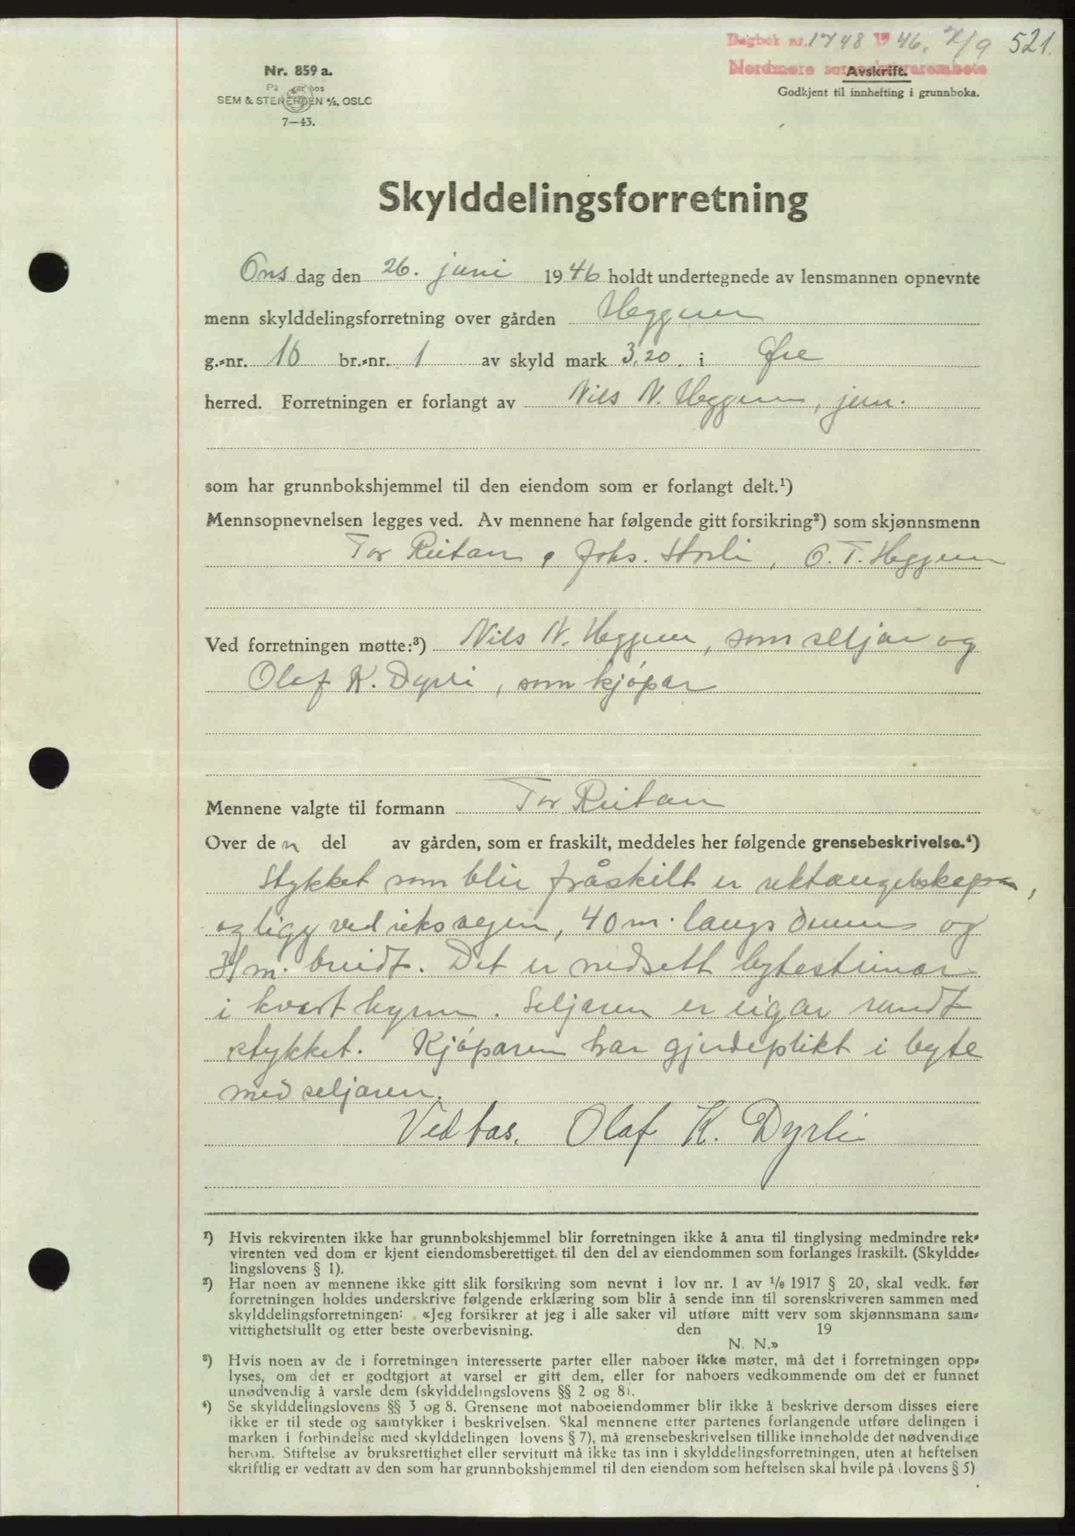 Dagbok nr. 1748 1946. 2/9 521.
Nordmøre sorenskriverembete
Avskrift.
Godkjent til innhefting i grunnboka.
Nr. 859 a.
På lager hos
SEM & STENERSEN A/S, OSLO
7—43.
Skylddelingsforretning
Ons dag den 26. juni 1946 holdt undertegnede av lensmannen opnevnte
menn skylddelingsforretning over gården Heggem
g.-nr. 16 br.-nr. 1 av skyld mark 3,20 i Øre
herred. Forretningen er forlangt av Nils N. Heggem, jun.
som har grunnbokshjemmel til den eiendom som er forlangt delt.¹)
Mennsopnevnelsen legges ved. Av mennene har følgende gitt forsikring²) som skjønnsmenn
Tor Reitan, Johs. Storli, O. T. Heggem
Ved forretningen møtte:³) Nils N. Heggem, som seljar og
Olaf K. Dyrli, som kjøpar
Mennene valgte til formann Tor Reitan
Over den del av gården, som er fraskilt, meddeles her følgende grensebeskrivelse.⁴)
Stykket som blir fråskilt er rektangelskapa,
og ligg ved riksvegen, 40 m. langs denne og
m. breidt. Det er nedsett bytesteinar
i kvart hyrne. Seljaren er eigar rundt
stykket. Kjøparen har gjerdeplikt i byte
med seljaren.
Vedtas. Olaf K. Dyrli
¹) Hvis rekvirenten ikke har grunnbokshjemmel blir forretningen ikke å anta til tinglysing medmindre rek-
virenten ved dom er kjent eiendomsberettiget til den del av eiendommen som forlanges fraskilt. (Skyldde-
lingslovens § 1).
²) Har noen av mennene ikke gitt slik forsikring som nevnt i lov nr. 1 av 1/6 1917 § 20, skal vedk. før
forretningen holdes underskrive følgende erklæring som blir å sende inn til sorenskriveren sammen med
skylddelingsforretningen: «Jeg forsikrer at jeg i alle saker vil utføre mitt verv som skjønnsmann sam-
vittighetsfullt og etter beste overbevisning. den 19
N. N.»
³) Hvis noen av de i forretningen interesserte parter eller naboer ikke møter, må det i forretningen opp-
lyses, om det er godtgjort at varsel er gitt dem, eller for naboers vedkommende om det er funnet
unødvendig å varsle dem (skylddelingslovens §§ 2 og 8).
⁴) Se skylddelingslovens §§ 3 og 8. Grensene mot naboeiendommer blir ikke å beskrive dersom disses eiere
ikke er til stede og samtykker i beskrivelsen. Skal mennene etter partenes forlangende utføre delingen i
marken i forbindelse med skylddelingen (lovens § 7), må grensebeskrivelsen tillike inneholde det nødvendige
herom. Stiftelse av bruksrettighet eller servitutt må ikke tas inn i skylddelingsforretningen, uten at heftelsen
skriftlig er vedtatt av den som har grunnbokshjemmel til den eiendom som heftelsen skal hvile på (lovens § 5)